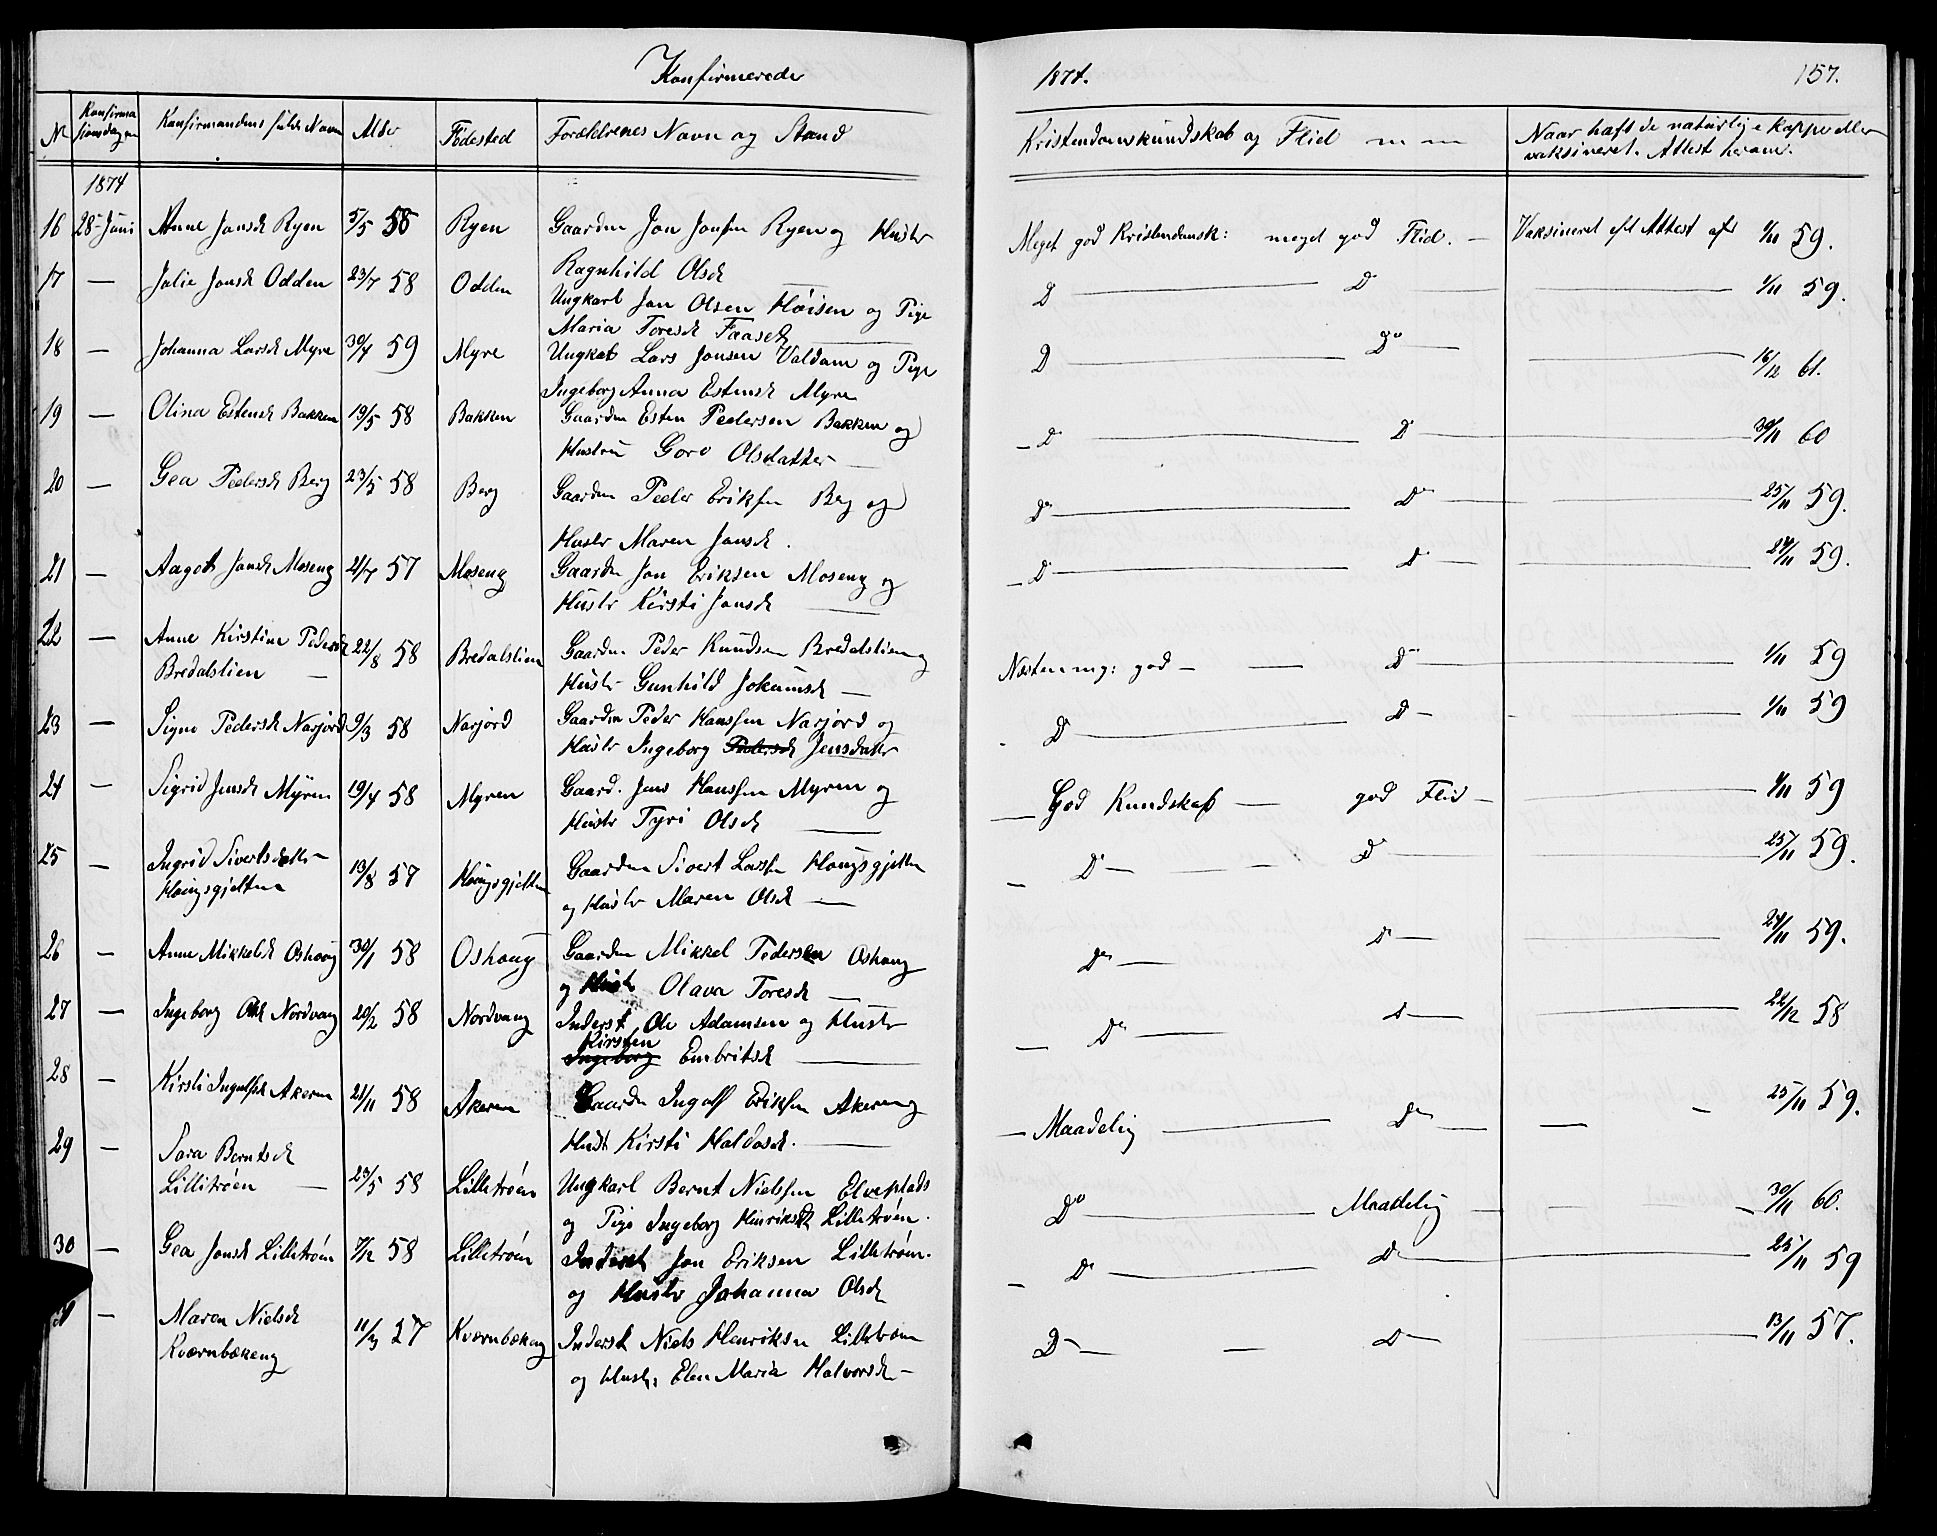 Konfirmerede 1874. 157.
N Konfirmationsdagen Konfirmandens fulde Navn Alder Födested Forældrenes Navn og Stand Kristendomskundskab og Flid m m Naar haft de naturlige Kopper eller vaksineret. Attest herom.
1874
16 28-Juni Anne Jonsd Ryen 5/5 58 Ryen Gaardm Jon Jonsen Ryen og Hustr Meget god Kristendomsk: meget god Flid. — Vaksineret eft Attest af 1/11 59.
Ragnhild Olsd
17 — Jolie Jonsd Odden 23/7 58 Odden Ungkarl Jon Olsen Höisen og Pige D — D — 1/11 59.
Maria Toresd Faased
18 — Johanna Larsd Myre 30/4 59 Myre Ungkarl Lars Jonsen Valdam og Pige D — Do — 16/12 61.
Ingeborg Anna Estensd Myre
19 — Olina Estensd Bakken 19/5 58 Bakken Gaardm Esten Pedersen Bakken og D — D — 30/11 60
Hustru Goro Olsdatter —
20 — Gea Pedersd Berg 23/5 58 Berg Gaardm Peder Eriksen Berg og Do — Do — 25/11 59.
Hustr Maren Jonsd.
21 — Aagot Jonsd Moseng 21/7 57 Moseng Gaardm Jon Eriksen Moseng og D — D — 24/11 59.
Hustr Kirsti Jonsd —
22 — Anne Kirstine Pedersd 22/8 58 Bredalslien Gaardm Peder Knudsen Bredalslien og Næsten mg: god — D — 1/11 59
Bredalslien — Hustr Gunhild Jokumsd —
23 — Signe Pedersd Narjord 9/3 58 Narjord Gaardm Peder Hanssen Narjord og D — D — 1/11 59
Hustr Ingeborg Pedersd Jensdatter
24 — Sigrid Jensd Myren 19/4 58 Myren Gaard. Jens Hanssen Myren og God Kundskab — god Flid — 1/11 59
Hustr Tyri Olsd —
25 — Ingrid Sivertsdatter 13/8 57 Hougsgjelten Gaardm Sivert Larsen Hougsgjelten D — D — 25/11 59.
Hougsgjelten og Hustr Maren Olsd —
26 — Anne Mikkelsd Oshoug 30/1 58 Oshoug Gaardm Mikkel Pedersen Oshoug D — D — 24/11 59.
og Hustr Olava Toresd —
27 — Ingeborg Olsd Nordvang 20/2 58 Nordvang Inderst Ole Adamsen og Hustr D — D — 22/12 58
Kirsten
Ingeborg Embritsd —
28 — Kirsti Ingulfsd Akeren 21/11 58 Akeren Gaardm Ingulf Eriksen Akeren og Maadelig — D — 25/11 59.
Hust Kirsti Haldosd. —
29 — Sara Berntsd
Lillitröen — 23/5 58 Lilletröen Ungkarl Bernt Nielssen Elveplads Do — Maadelig — 30/11 60.
og Pige Ingeborg Hinriksd Lilletröen.
30 — Gea Jonsd Lilletröen 7/12 58 Lilletröen Inderst Jon Eriksen Lilletröen. D — D — 25/11 59
og Hustr Johanna Olsd
— Maren Nielsd 11/3 57 Kværnbækeng Inderst Niels Henriksen Lilletröen D — D — 13/11 57.
Kværnbækeng og Hustr: Elen Maria Halvorsd —